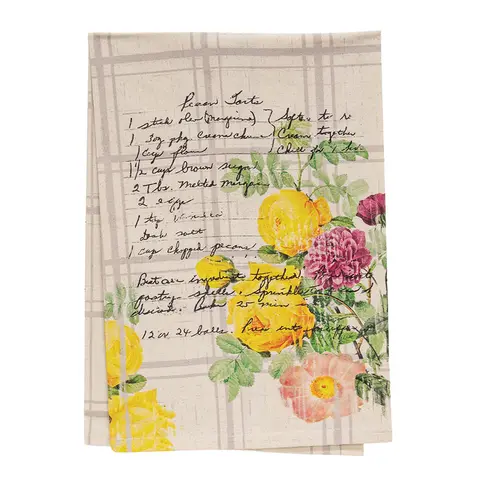 Pecan Tarts
1 stick oleo (margarine) } Soften to r
1 3oz pkg cream cheese } Cream together
1 cup flour } Chill for 1 hr.
1 1/2 cup brown sugar
2 Tbs. Melted Margari
2 eggs
1 tsp Vanilla
Dash salt
1 cup chopped pecans
ingredients together.
pastry shells. Sprinkle
desired. Bake 25 min
12 or 24 balls. Press into